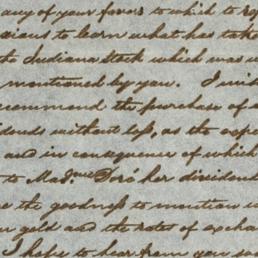 any of your favors to which to re
xious to learn what has take
the Indiana Stock which was w
mentioned by you. I wis
ecommend the purchase of
idends without loss, as the expe
and in consequence of which
to Mad.me Foré her dividend
e the goodness to mention w
in gold and the rates of excha
I hope to hear from you so